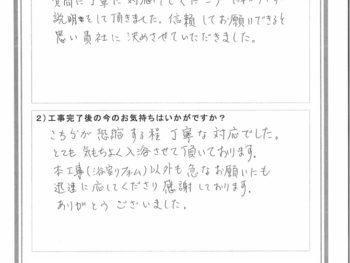 質問に丁寧に対応してくださり
説明をして頂きました。信頼してお願いできると
思い貴社に決めさせていただきました。
2）工事完了後の今のお気持ちはいかがですか？
こちらが恐縮する程丁寧な対応でした。
とても気もちよく入浴させて頂いております。
本工事(浴室リフォーム)以外も急なお願いにも
迅速に応じてくださり感謝しております。
ありがとうございました。